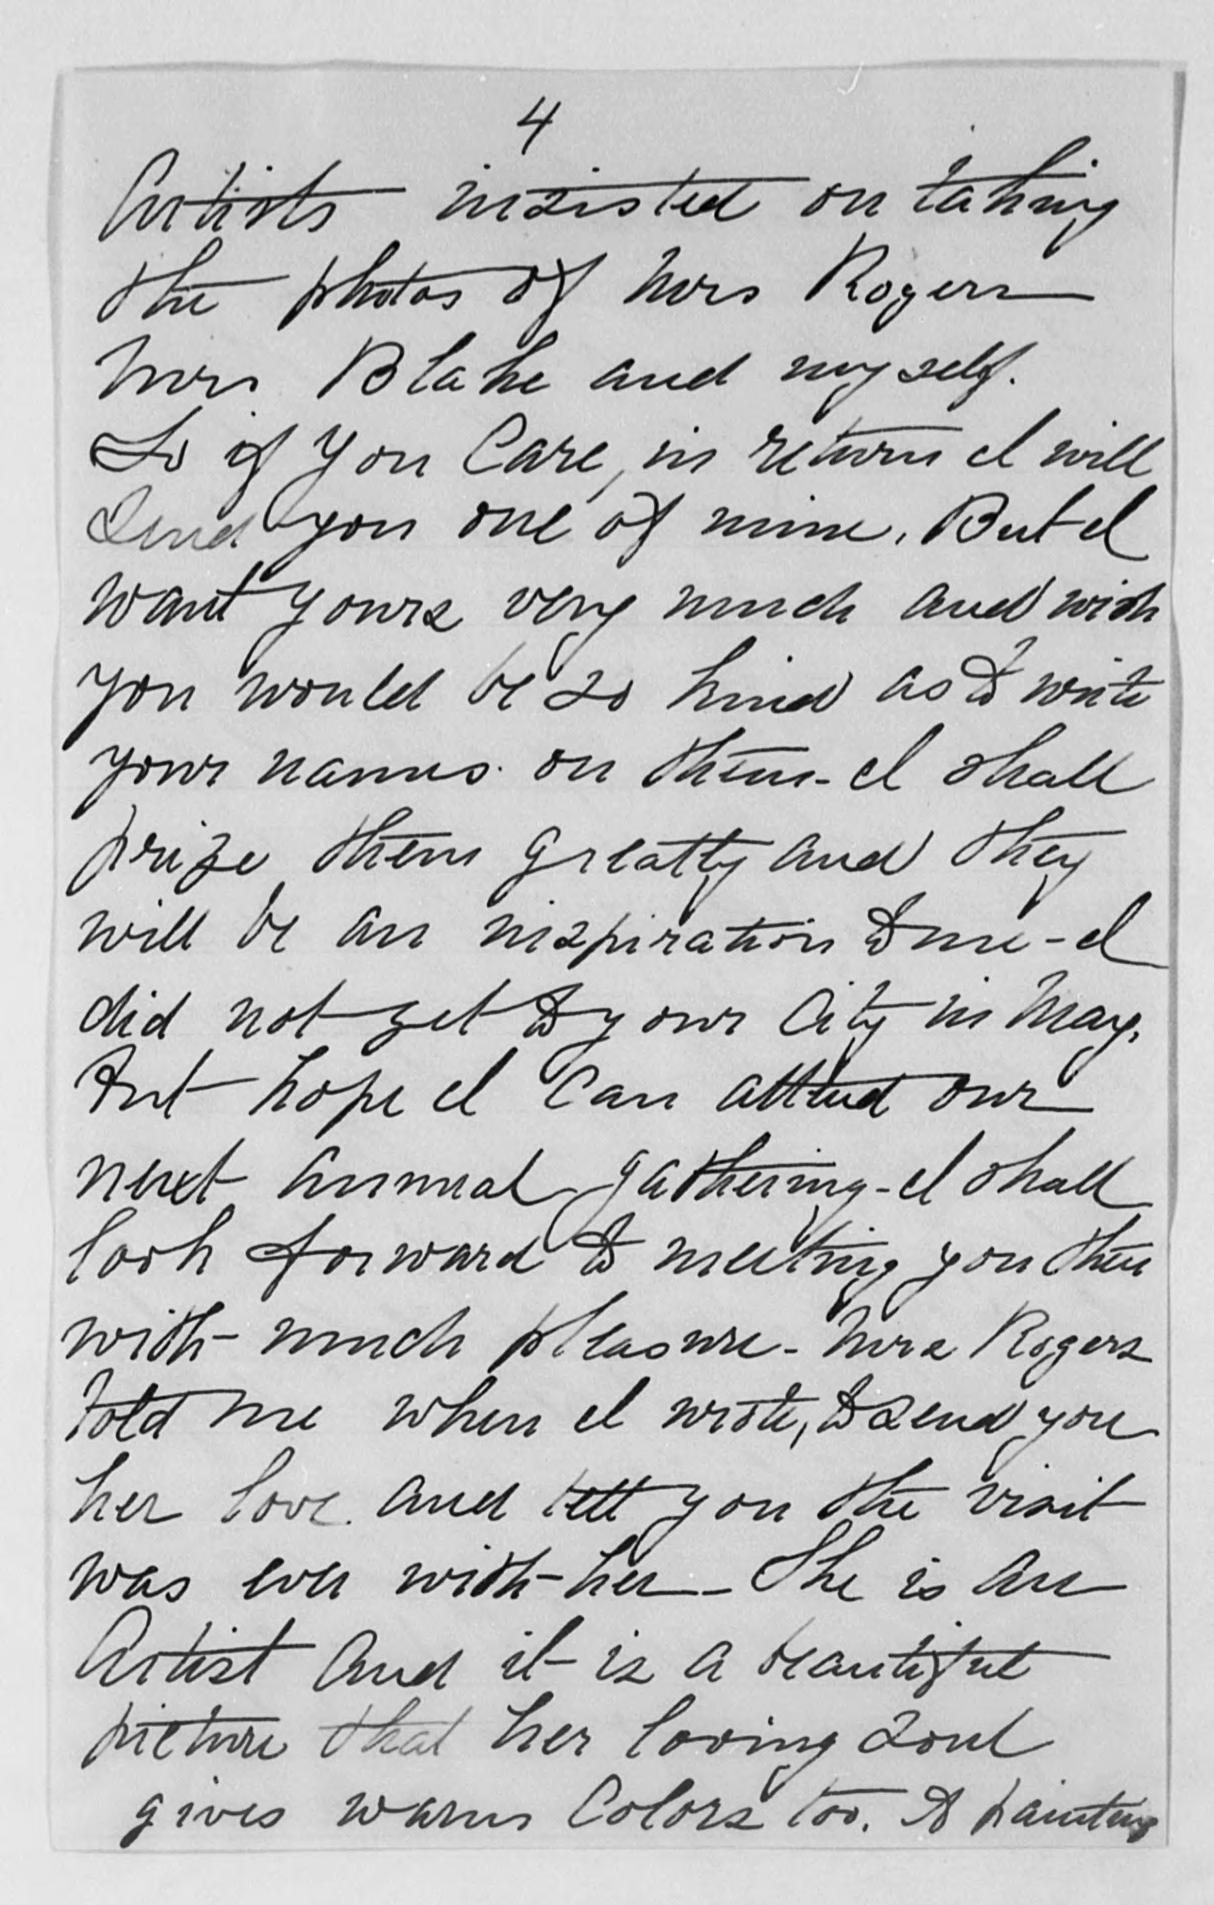 4
Artists insisted on taking
the photos of Mrs Rogers
Mrs Blake and myself.
So if you Care, in return I will
Send you one of mine. But I
want yours very much and wish
you would be so kind as to write
your names on them - I shall
prize them greatly and they
will be an inspiration to me - I
did not get to your City in May.
But hope I Can attend our
next annual gathering - I shall
look forward to meeting you then
with much pleasure - Mrs Rogers
told me when I wrote, to send you
her love. and tell you the visit
was ever with her - She is an
Artist And it is a beautiful
picture that her loving soul
gives warm Colors too. A painting